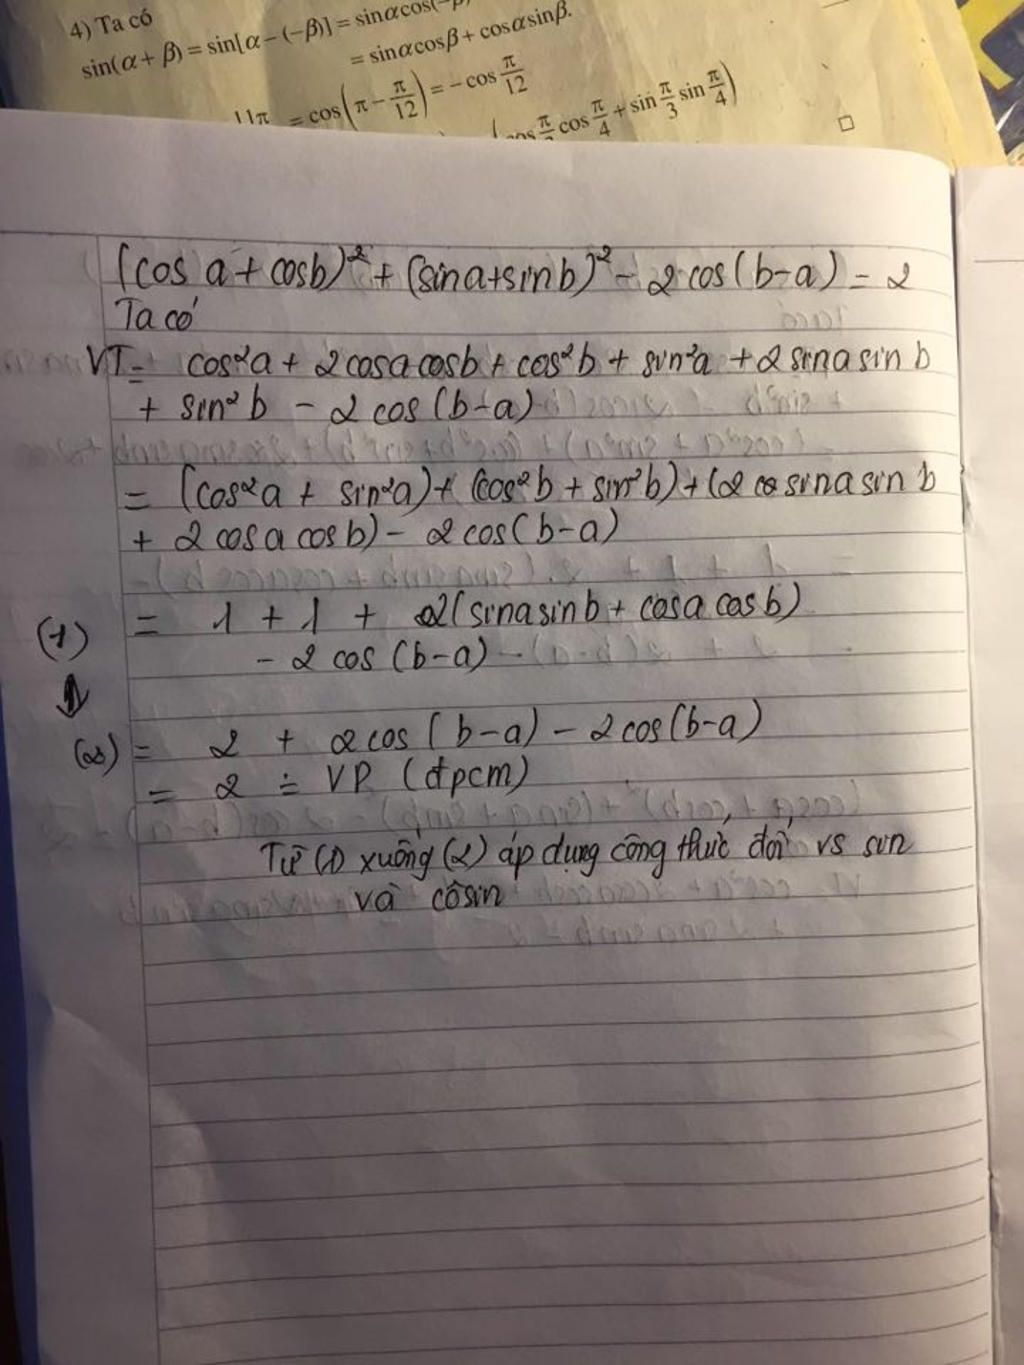 4) Ta có
sin(α + β) = sin[α − (−β)] = sinαcos(−β)
= sinαcosβ + cosαsinβ.
11π = cos(π − π/12) = −cos π/12
cos π/3 cos π/4 + sin π/3 sin π/4)
(cos a + cosb)² + (sina+sinb)² − 2 cos(b−a) = 2
Ta có
VT = cos²a + 2cosa cosb + cos²b + sin²a + 2 sina sin b
+ sin² b − 2 cos (b−a)
= (cos²a + sin²a) + (cos²b + sin²b) + (2 sina sin b
+ 2 cos a cos b) − 2 cos(b−a)
(1) = 1 + 1 + 2(sina sin b + cos a cos b)
− 2 cos (b−a)
(2) = 2 + 2 cos (b−a) − 2 cos(b−a)
= 2 = VP (đpcm)
Từ (1) xuống (2) áp dụng công thức đối vs sin
và côsin